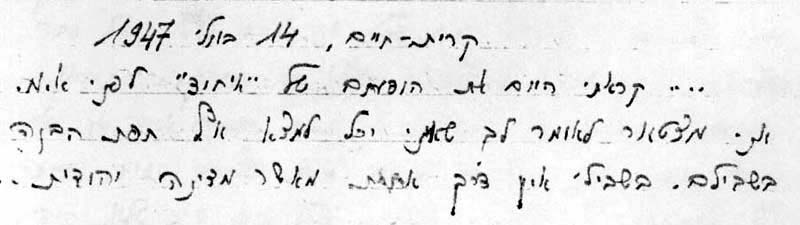 קרית-חיים, 14 ביולי 1947
.... קראתי היום את הופעתם של "איחוד" לפני
אני מצטאר לאומר לב שאיני יכל למצא אף תפת הבנה
בשבילם. בשבילי אין דרך אחרת מאשר מדינה יהודית..